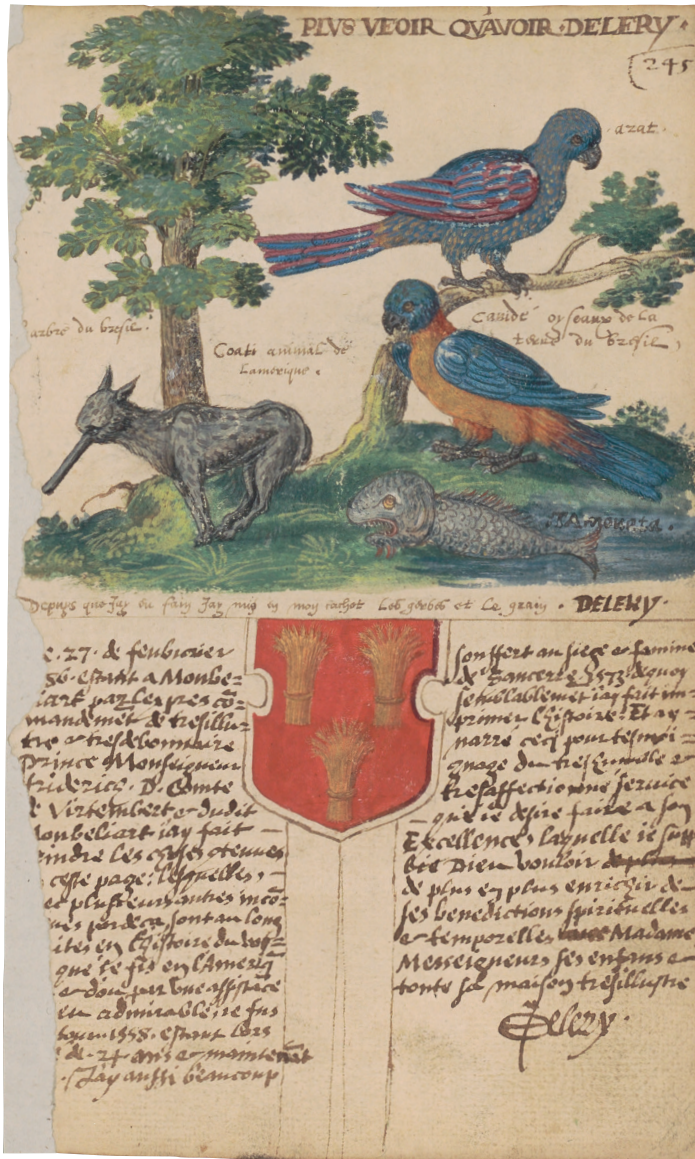 PLVS VEOIR QVAVOIR · DELERY ·
245
azat.
Canidé oyseaux de la
terre du bresil,
arbre du bresil.
Coati animal de
Lamerique.
TAmoneta.
Depuys que Jay eu faim Jay mis en mon cachot Les gerbes et Le grain · DELERY ·
e. 27. de feubvrier
86. estant a Monbe-
liart par les expres cō-
mandemēt de tresillus-
tre & tresdebonnaire
Prince Monseigneur
friderics. D. Comte
e Virtembert & dudit
onbeliart iay fait
eindre les choses ctenues
ceste page: lesquelles
et plusieurs autres incō-
ues par deca, sont au long
ites en l'histoire du vo
que ie fis en l'Ameriq
& dou par vne assistāce
eu admirable, ie fus
tour. 1558. estant lors
de. 24 ans & maintenāt
Jay aussi beaucoup
souffert au siege & famine
de Sancerre 1573 dequoy
semblablemēt iay fait im-
primer l'histoire. Et ay
narré ceci pour tesmoi-
gnage du treshumble &
tresaffectionné seruice
que ie desire faire a son
Excellence, laquelle ie sup
plie Dieu vouloir
de plus en plus enrichir de
ses benedictions spirituelles
& temporelles Madame
Messeigneurs ses enfans &
toute sa maison tresillustre
Delery.